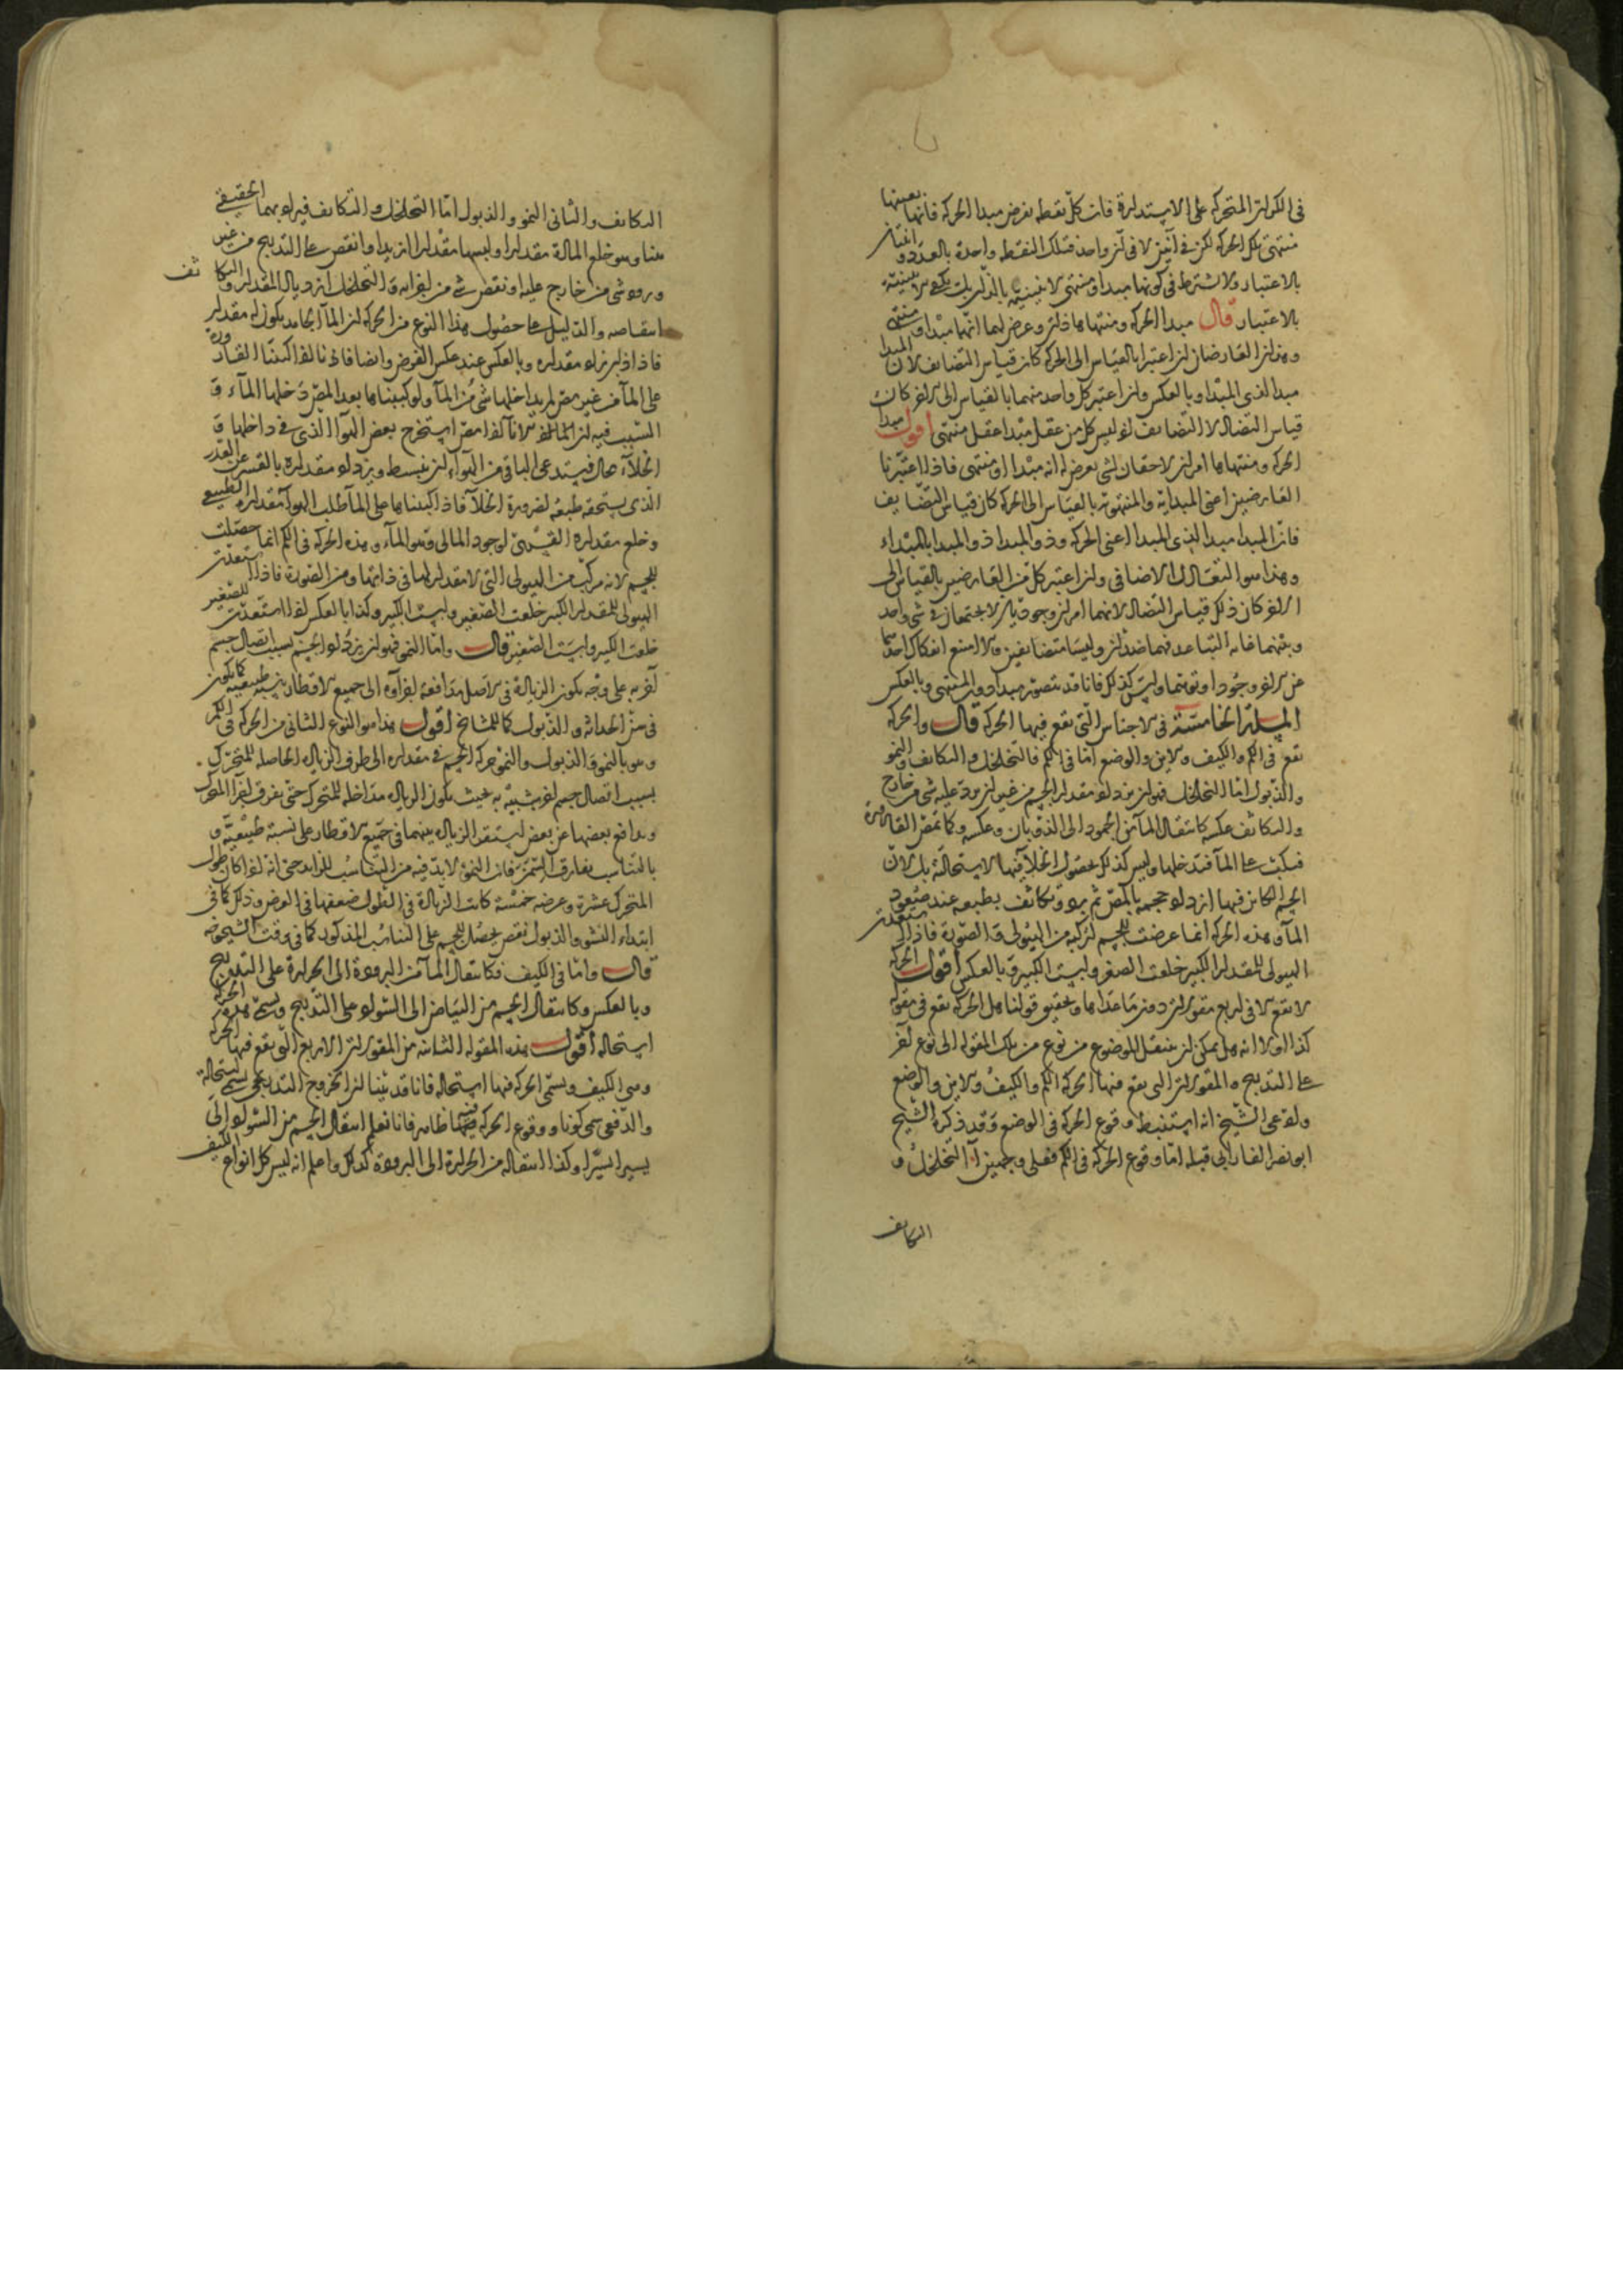 في الكرات المتحركة على الاستدارة فان كل نقطة يفرض مبدا الحركة فانها بعينها
منتهى تلك الحركة لكن في آنين لا في آن واحد فتلك النقطة واحدة بالعدد و اثنتان
بالاعتبار ولا يشترط في كونها مبدا و منتهى الاثنينية بالذات بل يكفي الاثنينية
بالاعتبار قال مبدا الحركة و منتهاها ذات وعرض لهما انهما مبدا و منتهى
وهذان العارضان ان اعتبرا بالقياس الى الحركة كان قياس التضايف لان المبدا
مبدا لذي المبدا و بالعكس وان اعتبر كل واحد منهما بالقياس الى الاخر كان
قياس التضاد لا التضايف اذ ليس كل من عقل مبدا عقل منتهى اقول مبدا
الحركة و منتهاها امران لاحقان لشي يعرض له انه مبدا او منتهى فاذا اعتبرنا
العارضين اعني المبدائية والمنتهوية بالقياس الى الحركة كان قياس التضايف
فان المبدا مبدا لذي المبدا اعني الحركة وذو المبدا ذو المبدا بالمبداء
وهذا هو التقابل الاضافي وان اعتبر كل من العارضين بالقياس الى
الاخر كان ذلك قياس التضاد لانهما امران وجوديان لا يجتمعان في شي واحد
وبينهما غاية التباعد فهما ضدان وليسا متضايفين والا امتنع انفكاك احدهما
عن الاخر وجودا وتوهما وليس كذلك فانا قد نتصور مبدا دون المنتهى وبالعكس
المسئلة الخامسة في الاجناس التي تقع فيها الحركة قال والحركة
تقع في الكم والكيف والاين والوضع اما في الكم فالتخلخل والتكاثف والنمو
والذبول اما التخلخل فهو ان يزداد مقدار الجسم من غير ان يرد عليه شي من خارج
والتكاثف عكسه كانتقال الماء من الجمود الى الذوبان وعكسه وكما تمص القارورة
فتكب على الماء فتدخلها وليس كذلك لحصول الخلاء فيها لاستحالته بل لان
الجسم الكاين فيها ازداد حجمه بالمص ثم برد و تكاثف بطبعه عند صعود
الماء وهذه الحركة انما عرضت للجسم لتركبه من الهيولى والصورة فاذا استعدت
الهيولى للمقدار الكبير خلعت الصغير ولبست الكبير وبالعكس اقول الحركة
لا تقع الا في اربع مقولات دون ما عداها وتحقيق قولنا هل الحركة تقع في مقولة
كذا اولا انه هل يمكن ان ينتقل الموضوع من نوع من تلك المقولة الى نوع آخر
على التدريج والمقولات التي تقع فيها الحركة الكم والكيف والاين والوضع
وادعى الشيخ انه استنبط وقوع الحركة في الوضع وقد ذكره الشيخ
ابو نصر الفارابي قبله اما وقوع الحركة في الكم فعلى وجهين آ التخلخل و
التكاثف
التكاثف والثاني النمو والذبول اما التخلخل والتكاثف فيراد بهما الحقيقي
هنا وهو خلع المادة مقدارا ولبسها مقدارا ازيد او انقص على التدريج من غير
ورود شي من خارج عليه او نقص شي من اجزايه والتخلخل ازدياد المقدار والتكاثف
انتقاصه والدليل على حصول هذا النوع من الحركة ان الماء الجامد يكون له مقدار
فاذا ذاب زاد مقداره وبالعكس عند عكس الفرض وايضا فانا اذا كببنا القارورة
على الماء من غير مص لم يداخلها شي من الماء ولو كببناها بعد المص دخلها الماء و
السبب فيه ان لانا اذا مص استخرج بعض الهواء الذي في داخلها و
الخلاء محال فيستدعي الباقي من الهواء ان ينبسط ويزداد مقداره بالقسر عن القدر
الذي يستحقه طبعه لضرورة الخلاء فاذا كببناها على الماء طلب الهواء مقداره الطبيعي
وخلع مقداره القسري لوجود المالي وهو الماء وهذه الحركة في الكم انما حصلت
للجسم لانه مركب من الهيولى التي لا مقدار لها في ذاتها ومن الصورة فاذا استعدت
الهيولى للمقدار الكبير خلعت الصغير ولبست الكبير وكذا بالعكس اذا استعدت للصغير
خلعت الكبير ولبست الصغير قال واما النمو فهو ان يزداد الجسم بسبب اتصال جسم
آخر به على وجه يكون الزيادة في الاصل مدافعة اجزاؤه الى جميع الاقطار بنسبة طبيعية كما يكون
في سن الحداثة والذبول كما للمشايخ اقول هذا هو النوع الثاني من الحركة في الكم
وهو بالنمو والذبول والنمو حركة الجسم في مقداره الى طرف الزيادة الحاصلة للمتحرك
بسبب اتصال جسم اخر شبيه به بحيث يكون الزيادة مداخلة للمتحرك حتى يفرق اجزاء المتحرك
ويدافع بعضها عن بعض ليستقر الزيادة بينهما في جميع الاقطار على نسبة طبيعية و
بالتناسب يفارق السمن فان النمو لا بد فيه من التناسب للزايد حتى انه اذا كان طول
المتحرك عشرة وعرضه خمسة كانت الزيادة في الطول ضعفها في العرض وذلك كما في
ابتداء النشو والذبول نقص يحصل للجسم على التناسب المذكور كما في وقت الشيخوخة
قال واما في الكيف فكانتقال الماء من البرودة الى الحرارة على التدريج
وبالعكس وكانتقال الجسم من البياض الى السواد على التدريج ويسمى هذه الحركة
استحالة اقول هذه المقولة الثانية من المقولات الاربع التي تقع فيها الحركة
وهي الكيف ويسمى الحركة فيها استحالة فانا قد بينا ان الخروج التدريجي يسمى استحالة
والدفعي يسمى كونا و وقوع الحركة فيها ظاهر فانا نعلم انتقال الجسم من السواد الى
يسيرا يسيرا وكذا انتقاله من الحرارة الى البرودة كذلك واعلم انه ليس كل انواع الكيف